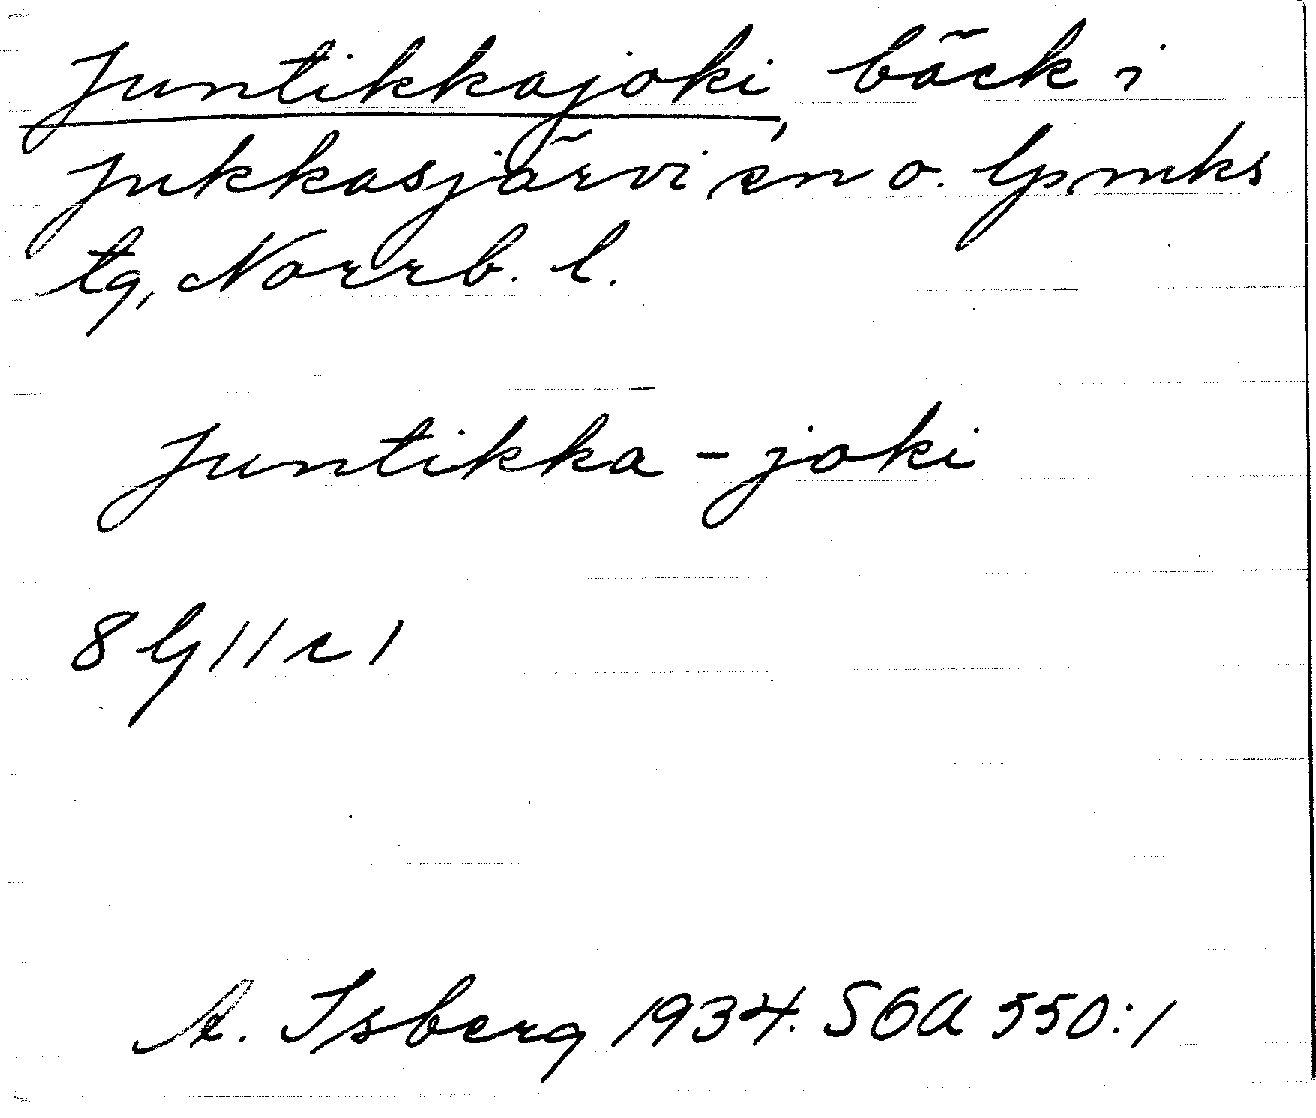 Juntikkajoki, bäck i
Jukkasjärvi sn o. lpmks
tg, Norrb. l.
Juntikka - joki
8 G 11 c 1
A. Isberg 1934. SOA 550:1